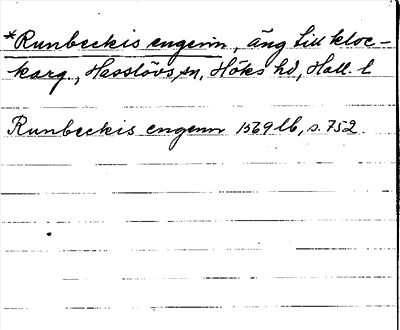 *Runbeckis engenn, äng till kloc-
karg., Hasslövs sn, Höks hd, Hall. l
Runbeckis engenn 1569 lb, s. 752.